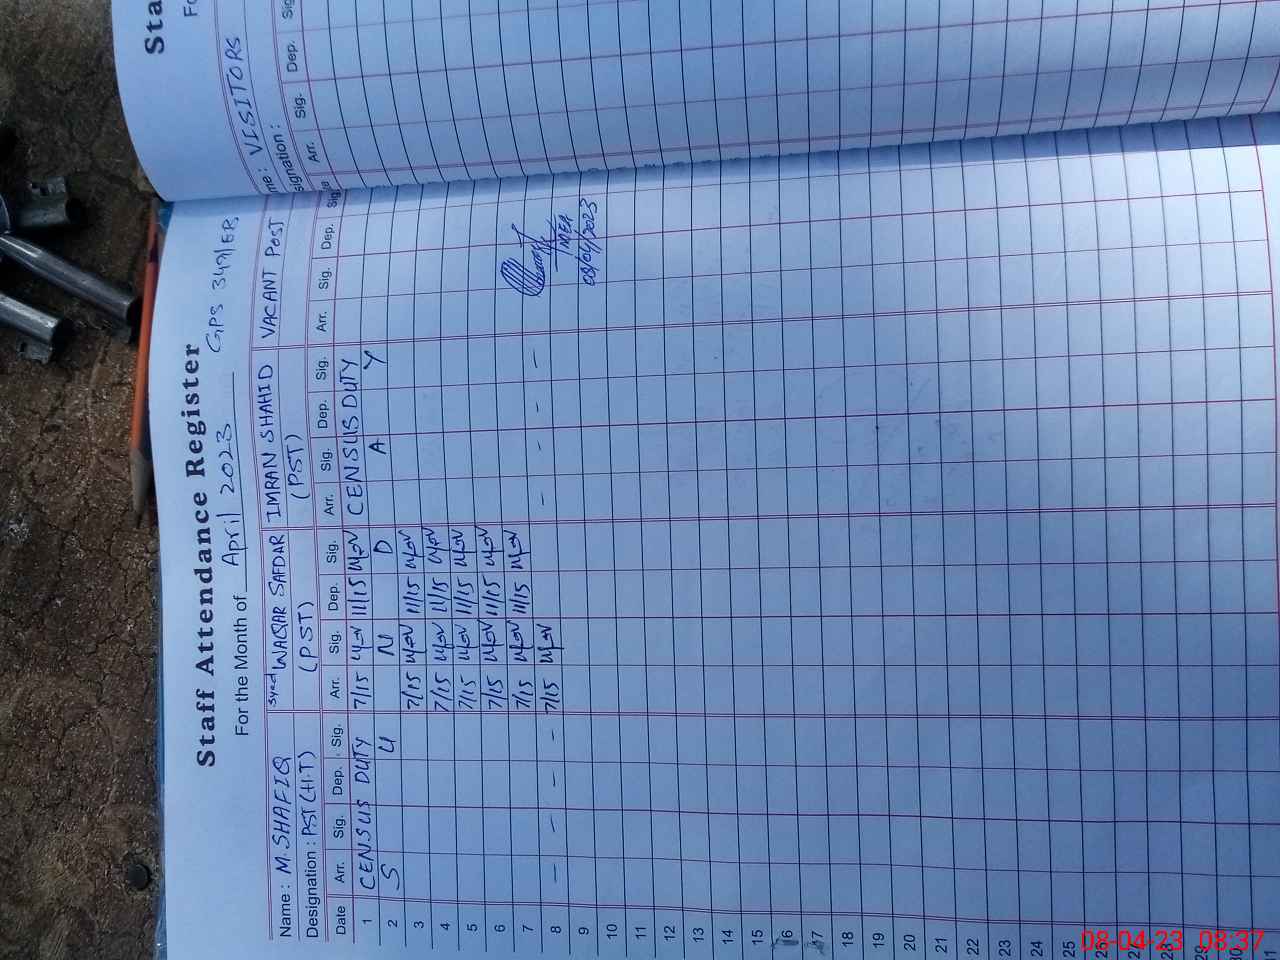 Staff Attendance Register
For the Month of April 2023 GPS 349/ER
Name : M. SHAFIQ Syed WAQAR SAFDAR IMRAN SHAHID VACANT POST
Designation : PST (H.T) (PST) (PST)
Date Arr. Sig. Dep. Sig. Arr. Sig. Dep. Sig. Arr. Sig. Dep. Sig. Arr. Sig. Dep. Sig.
1 CENSUS DUTY 7/15 11/15 CENSUS DUTY
2 S U N D A Y
3 7/15 11/15
4 7/15 11/15
5 7/15 11/15
6 7/15 11/15
7 7/15 11/15
8 — — — — 7/15 — — — —
MEA
08/04/2023
9
10
11
12
13
14
15
16
17
18
19
20
21
22
23
24
25
26
27
28
29
30
31
Sta
Fo
me : VISITORS
signation :
Arr. Sig. Dep. Sig
08-04-23 08:37